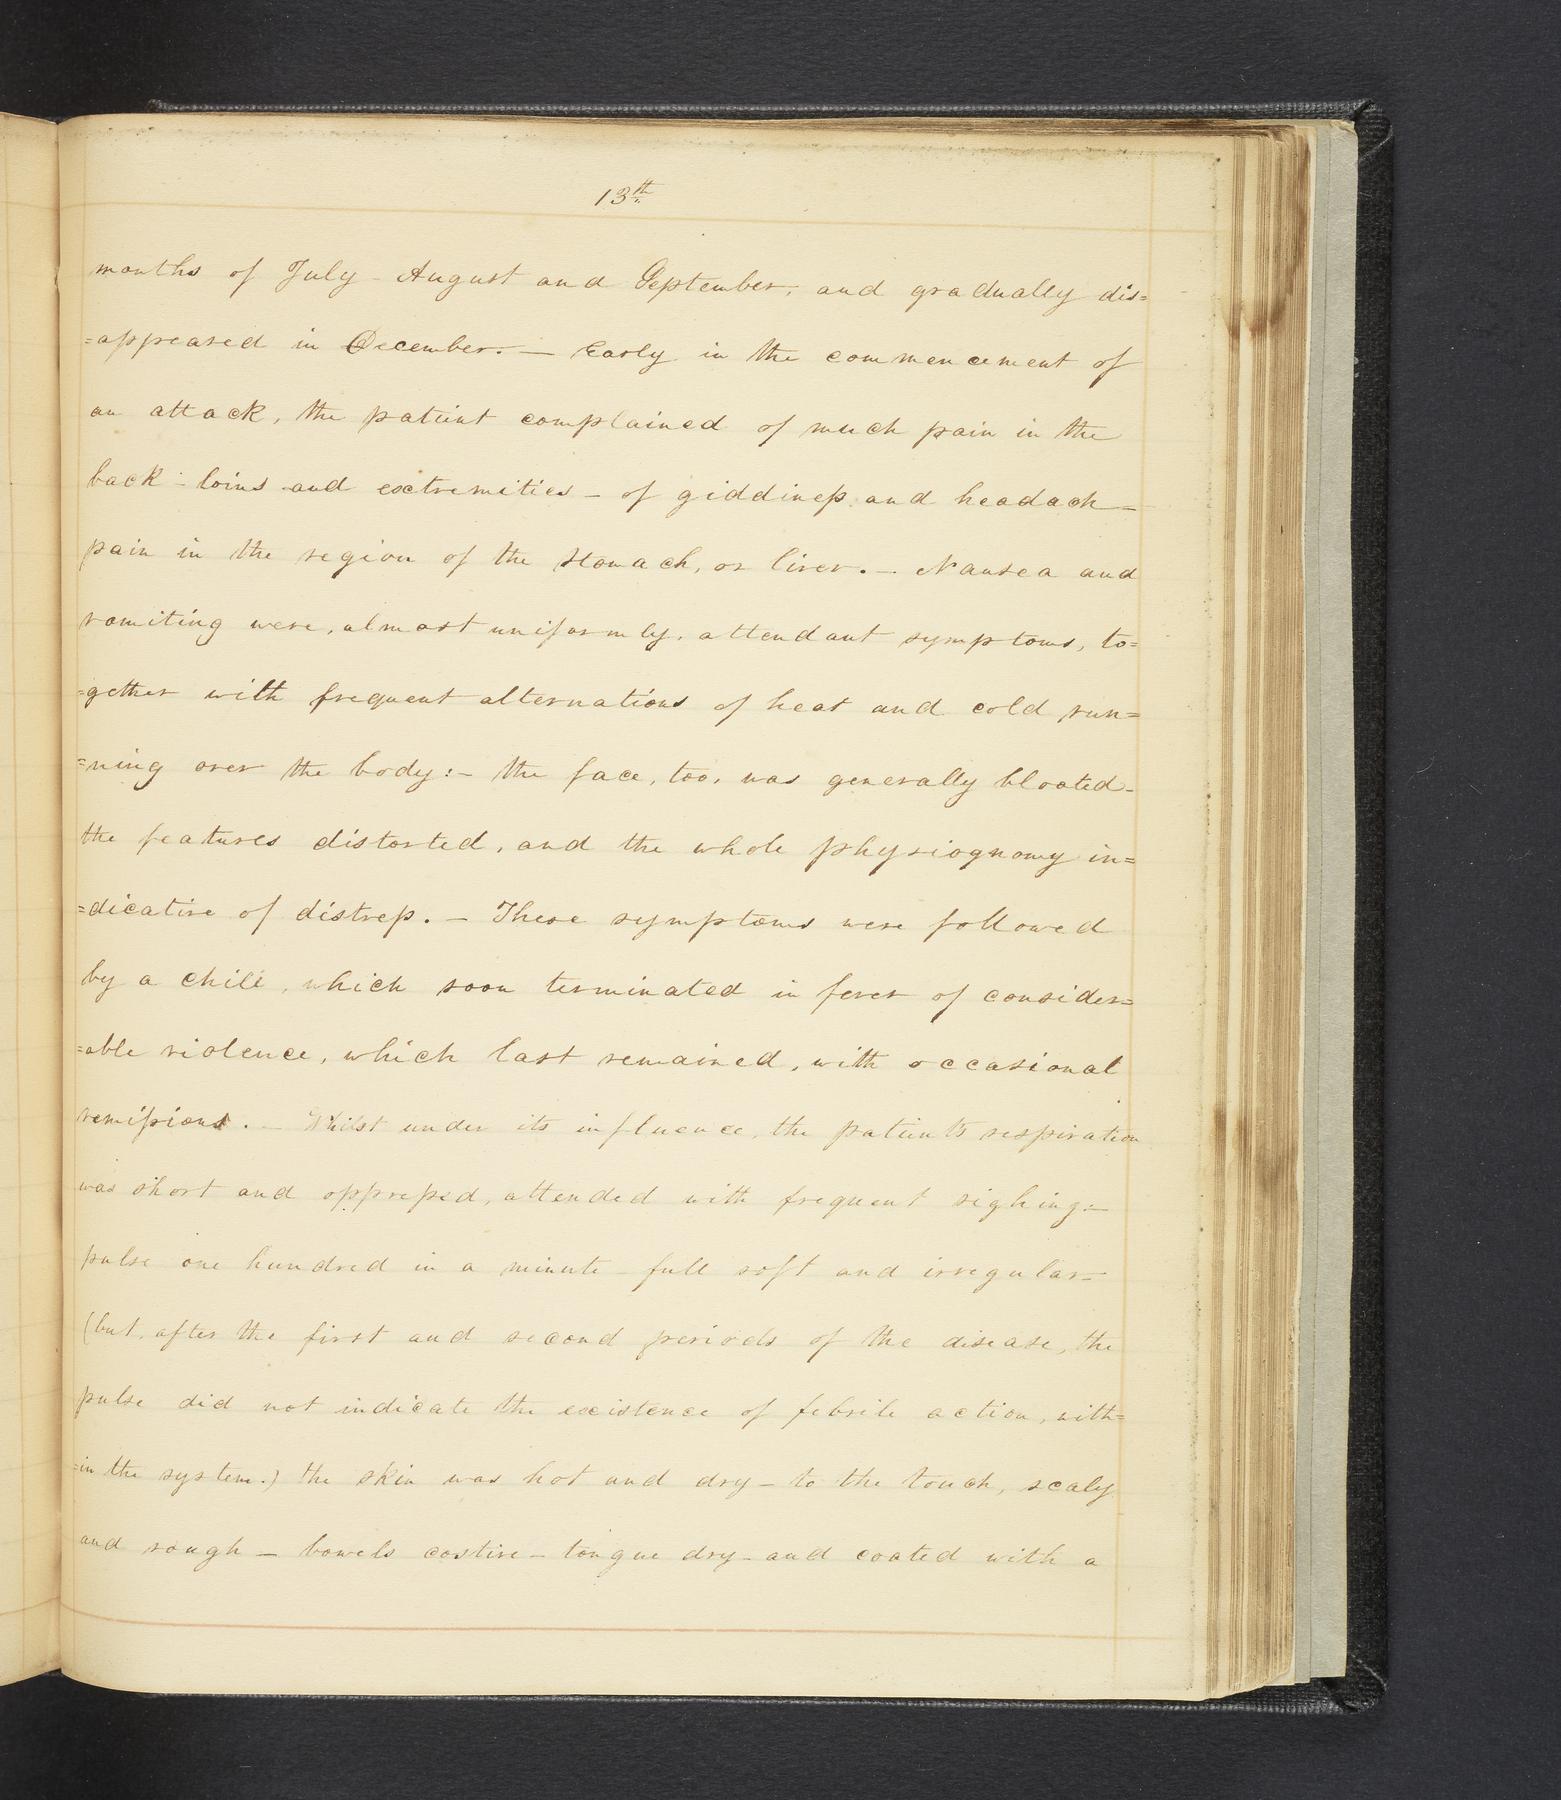 13th
months of July - August and September, and gradually dis=
=appeared in December. — Early in the commencement of
an attack, the patient complained of much pain in the
back - loins and extremities - of giddiness and headach —
pain in the region of the stomach, or liver. — Nausea and
vomiting were, almost uniformly, attendant symptoms, to=
=gether with frequent alternations of heat and cold run=
=ning over the body:- the face, too, was generally bloated -
the features distorted, and the whole physiognomy in=
=dicative of distress. — These symptoms were followed
by a chill, which soon terminated in fever of consider=
=able violence, which last remained, with occasional
remissions. — Whilst under its influence, the patient's respiration
was short and oppressed, attended with frequent sighing:—
pulse one hundred in a minute - full soft and irregular —
(but, after the first and second periods of the disease, the
pulse did not indicate the existence of febrile action, with=
=in the system.) the skin was hot and dry — to the touch, scaly
and rough — bowels costive — tongue dry - and coated with a